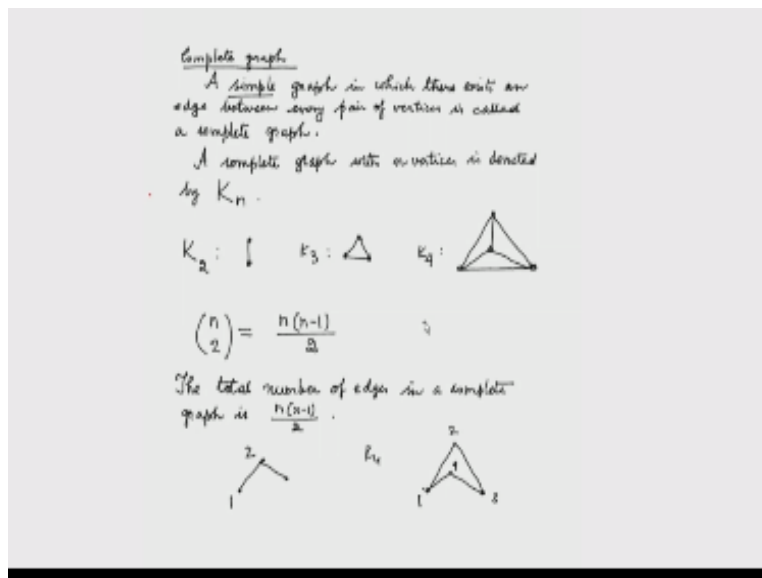 Complete graph
A simple graph in which there exists an
edge between every pair of vertices is called
a complete graph.
A complete graph with n vertices is denoted
by Kn.
K2: K3: K4:
(n 2) = n(n-1)/2
The total number of edges in a complete
graph is n(n-1)/2.
2 2
K4 4
1 1 3